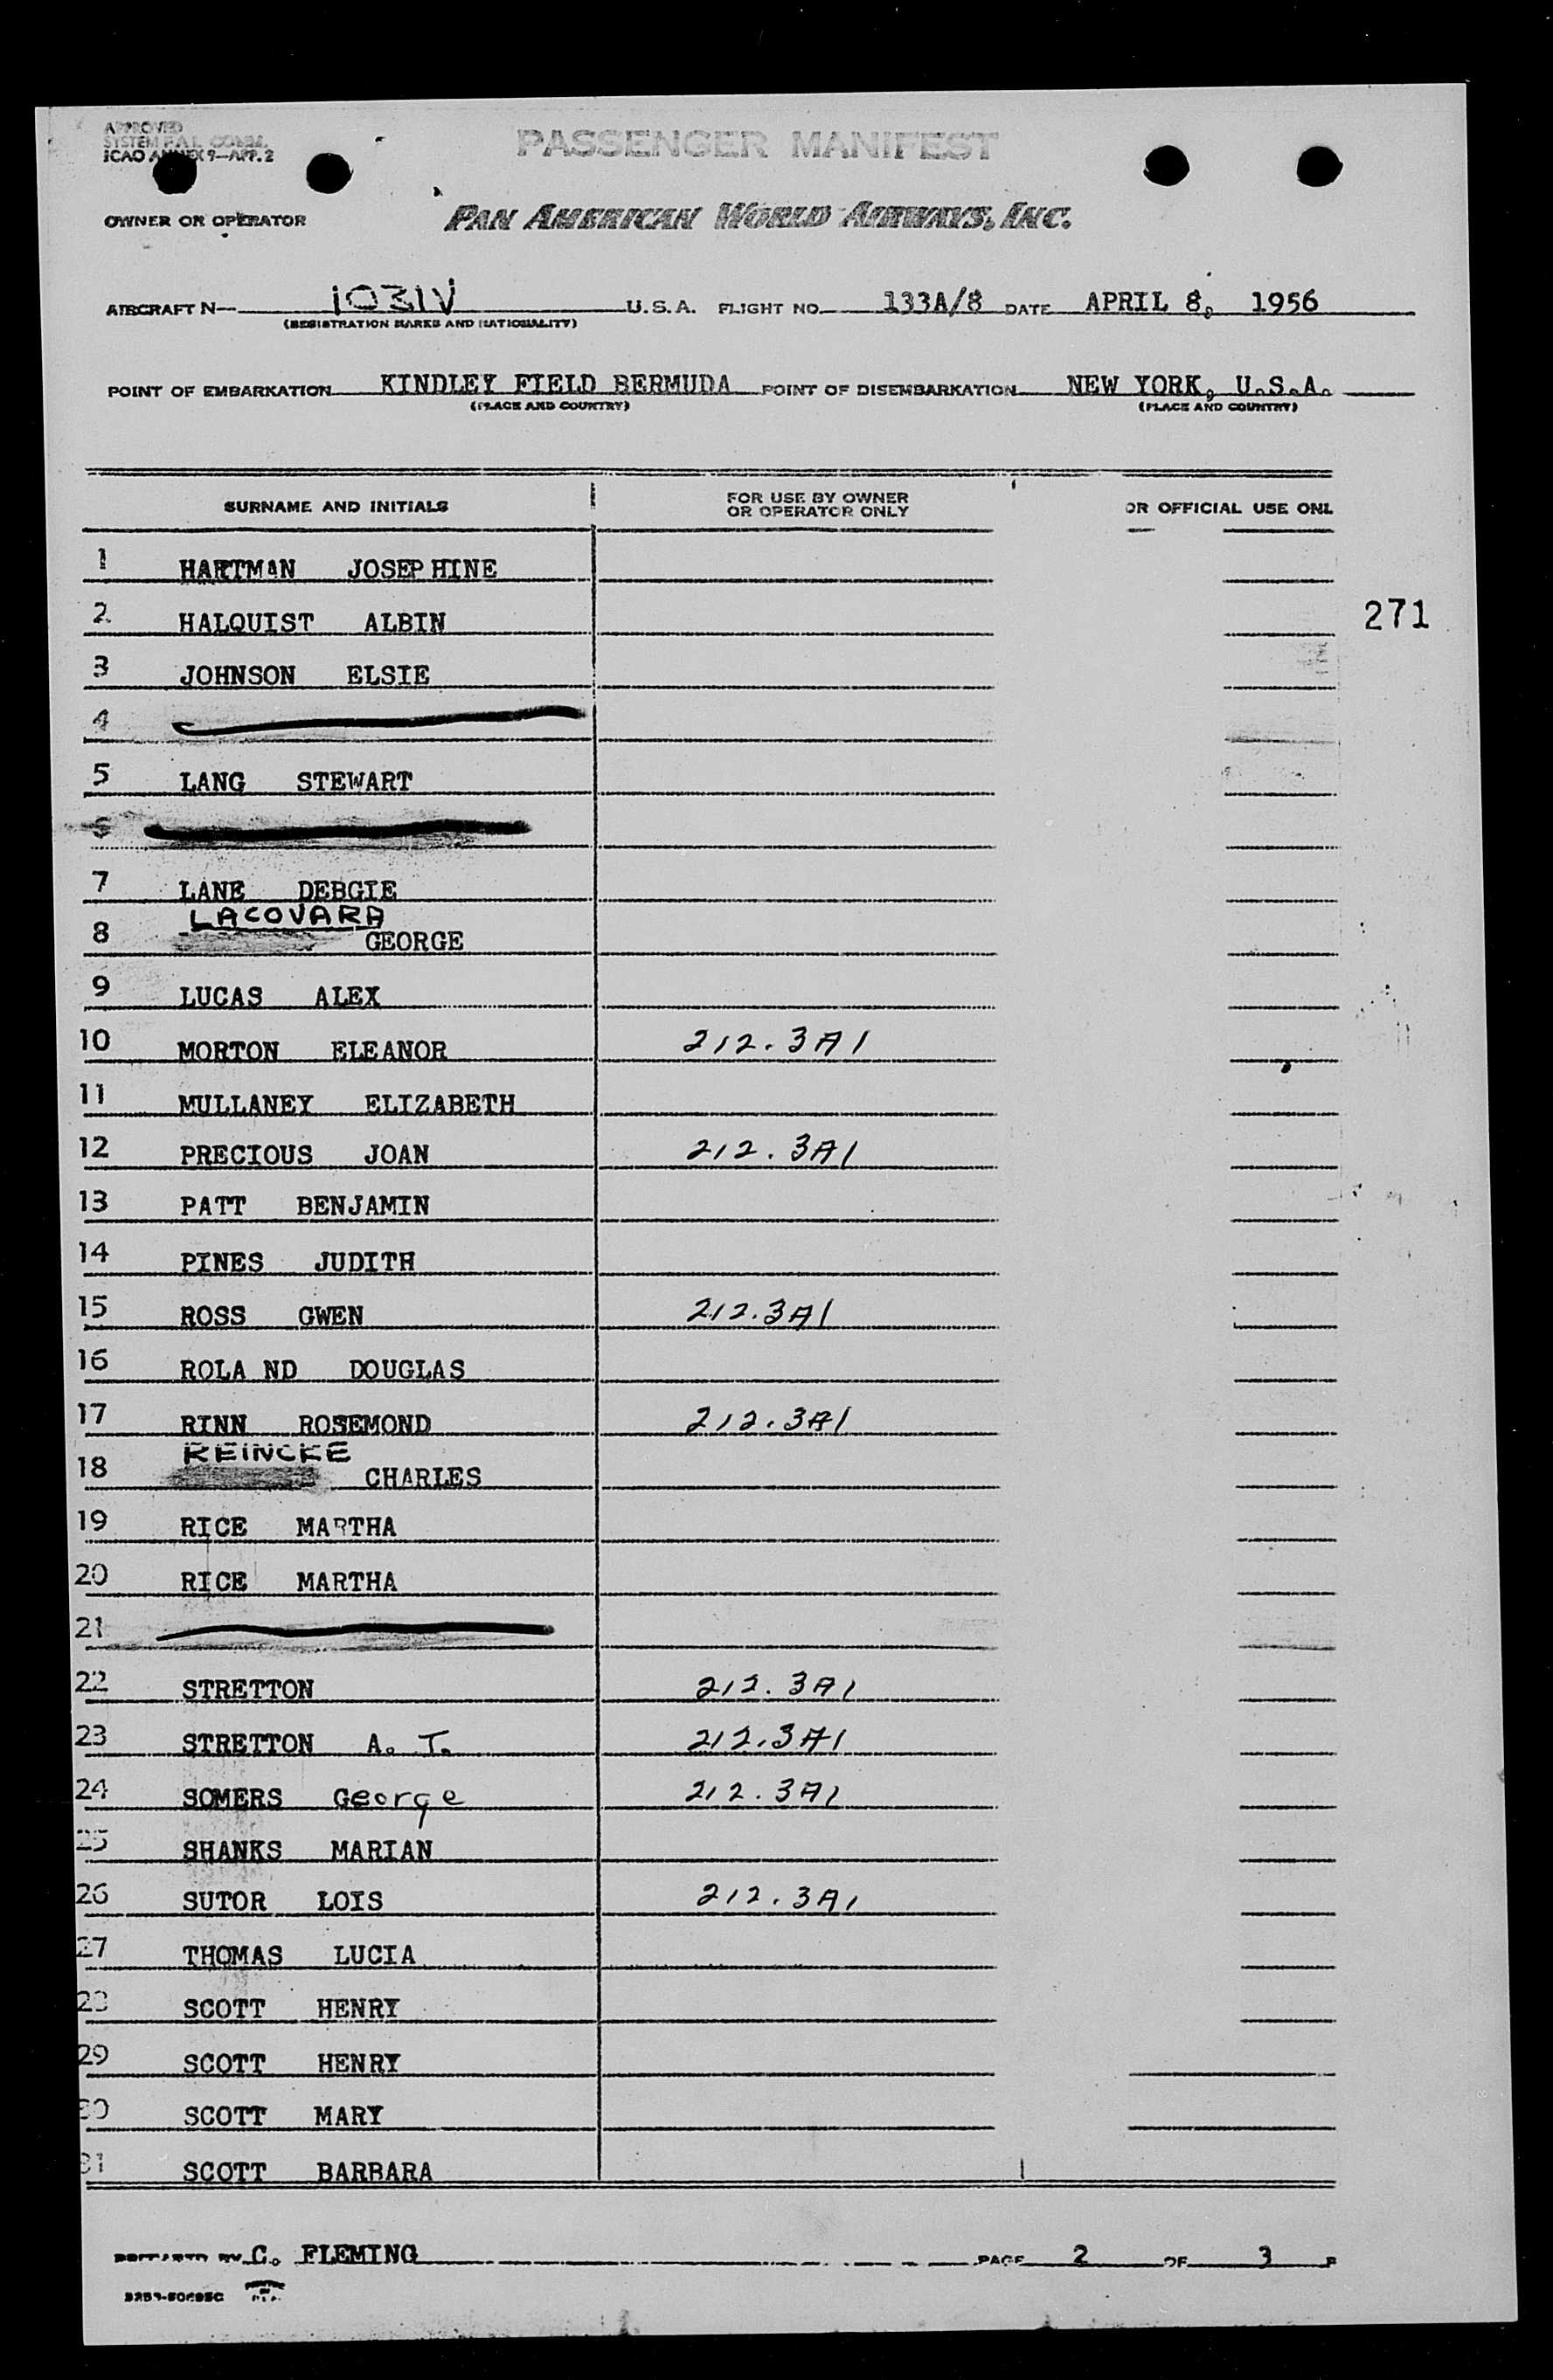 APPROVED
SYSTEM F.A.L. COMM.
ICAO ANNEX 9—APP. 2
PASSENGER MANIFEST
OWNER OR OPERATOR PAN AMERICAN WORLD AIRWAYS, INC.
AIRCRAFT N— 1031V U.S.A. FLIGHT NO. 133A/8 DATE APRIL 8, 1956
(REGISTRATION MARKS AND NATIONALITY)
POINT OF EMBARKATION KINDLEY FIELD BERMUDA POINT OF DISEMBARKATION NEW YORK, U.S.A.
(PLACE AND COUNTRY) (PLACE AND COUNTRY)
SURNAME AND INITIALS FOR USE BY OWNER OR OPERATOR ONLY OR OFFICIAL USE ONL
1 HARTMAN JOSEPHINE
2 HALQUIST ALBIN 271
3 JOHNSON ELSIE
4
5 LANG STEWART
6
7 LANE DEBGIE
LACOVARA
8 GEORGE
9 LUCAS ALEX
10 MORTON ELEANOR 212.3A1
11 MULLANEY ELIZABETH
12 PRECIOUS JOAN 212.3A1
13 PATT BENJAMIN
14 PINES JUDITH
15 ROSS GWEN 212.3A1
16 ROLA ND DOUGLAS
17 RINN ROSEMOND 212.3A1
REINCKE
18 CHARLES
19 RICE MARTHA
20 RICE MARTHA
21
22 STRETTON 212.3A1
23 STRETTON A. T. 212.3A1
24 SOMERS George 212.3A1
25 SHANKS MARIAN
26 SUTOR LOIS 212.3A1
27 THOMAS LUCIA
28 SCOTT HENRY
29 SCOTT HENRY
30 SCOTT MARY
31 SCOTT BARBARA
PREPARED BY C. FLEMING PAGE 2 OF 3 P